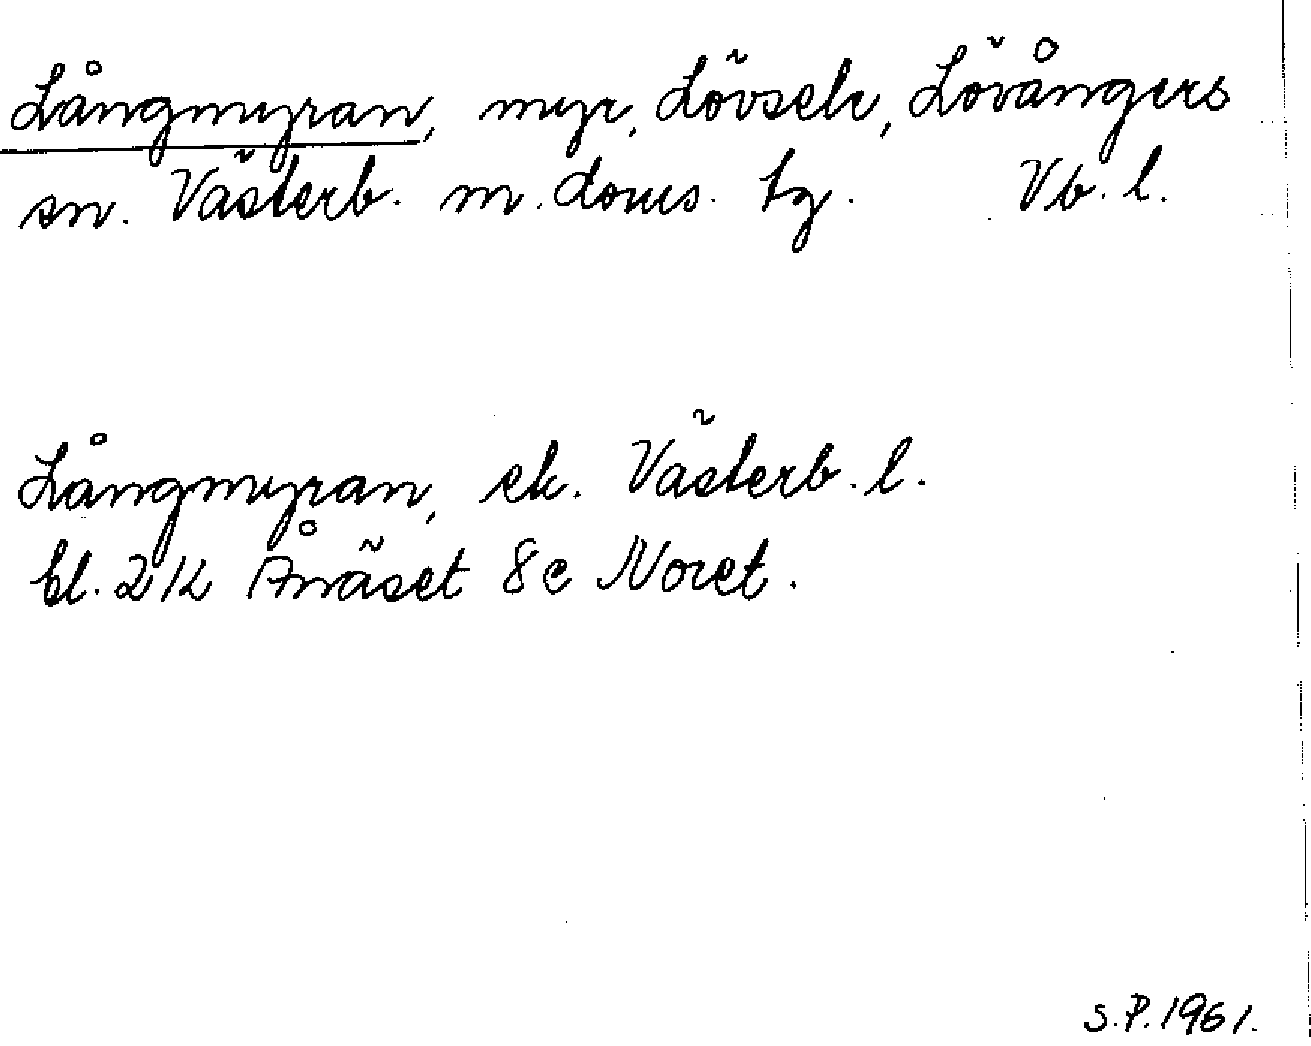 Långmyran, myr, Lövsele, Lövångers
sn. Västerb. m. doms. tg. Vb. l.
Långmyran, ek. Västerb. l.
bl. 21K Ånäset 8e Noret.
S.P. 1961.